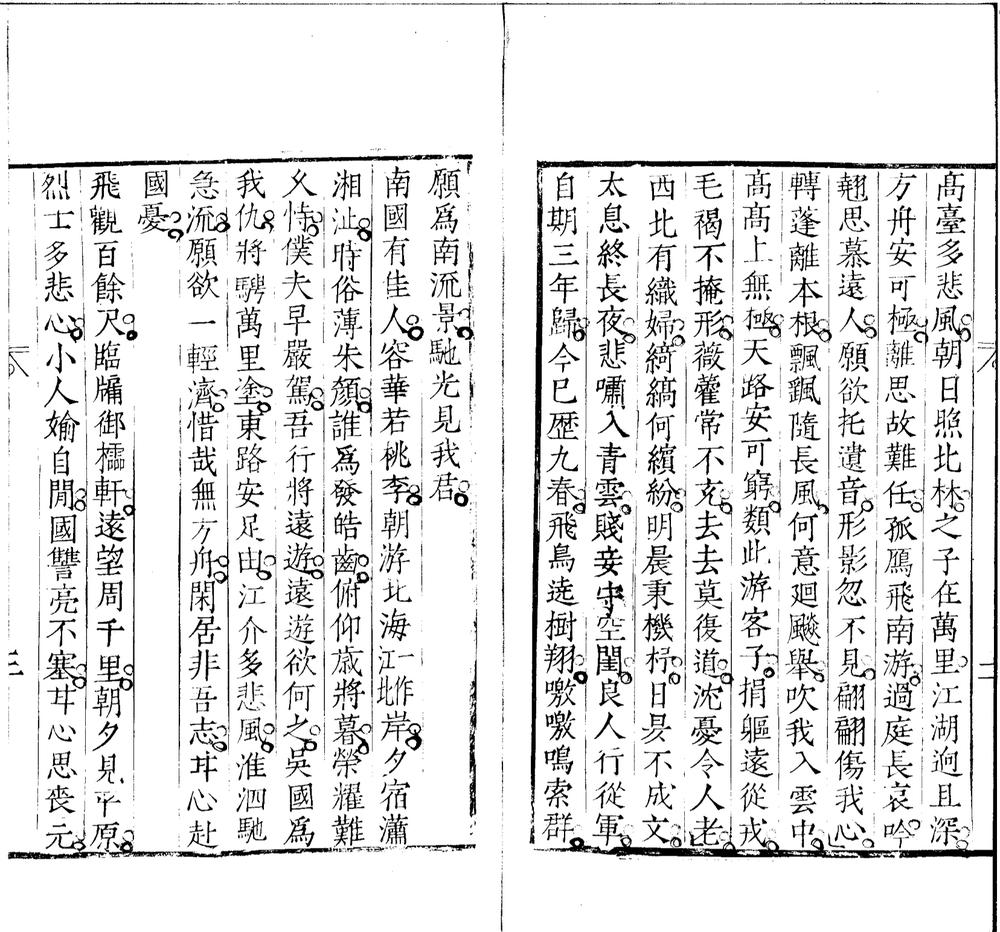 高臺多悲風朝日照北林之子在萬里江湖迥且深
方舟安可極離思故難任孤鴈飛南游過庭長哀吟
翹思慕遠人願欲托遺音形影忽不見翩翩傷我心
轉蓬離本根飄颻隨長風何意廻飈舉吹我入雲中
高高上無極天路安可窮類此游客子捐軀遠從戎
毛褐不掩形薇藿常不充去去莫復道沈憂令人老
西北有織婦綺縞何繽紛明晨秉機杼日昃不成文
太息終長夜悲嘯入青雲賤妾守空閨良人行從軍
自期三年歸今已歷九春飛鳥遶樹翔噭噭鳴索群
願爲南流景馳光見我君
南國有佳人容華若桃李朝游北海一作江北岸夕宿瀟
湘沚時俗薄朱顏誰爲發皓齒俯仰歳將暮榮耀難
久恃僕夫早嚴駕吾行將遠遊遠遊欲何之吳國爲
我仇將騁萬里塗東路安足由江介多悲風淮泗馳
急流願欲一輕濟惜哉無方舟閑居非吾志甘心赴
國憂
飛觀百餘尺臨牖御櫺軒遠望周千里朝夕見平原
烈士多悲心小人媮自閒國讐亮不塞甘心思喪元
二
三